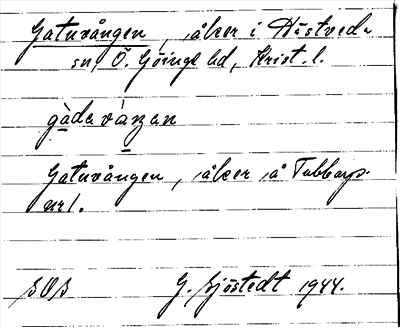 Gatuvången, åker i Hästveda
sn, Ö. Göinge hd, Krist. l.
gàdavàŋan
Gatuvången, åker å Tubbarps-
nr 1.
SOB
G. Sjöstedt 1944.